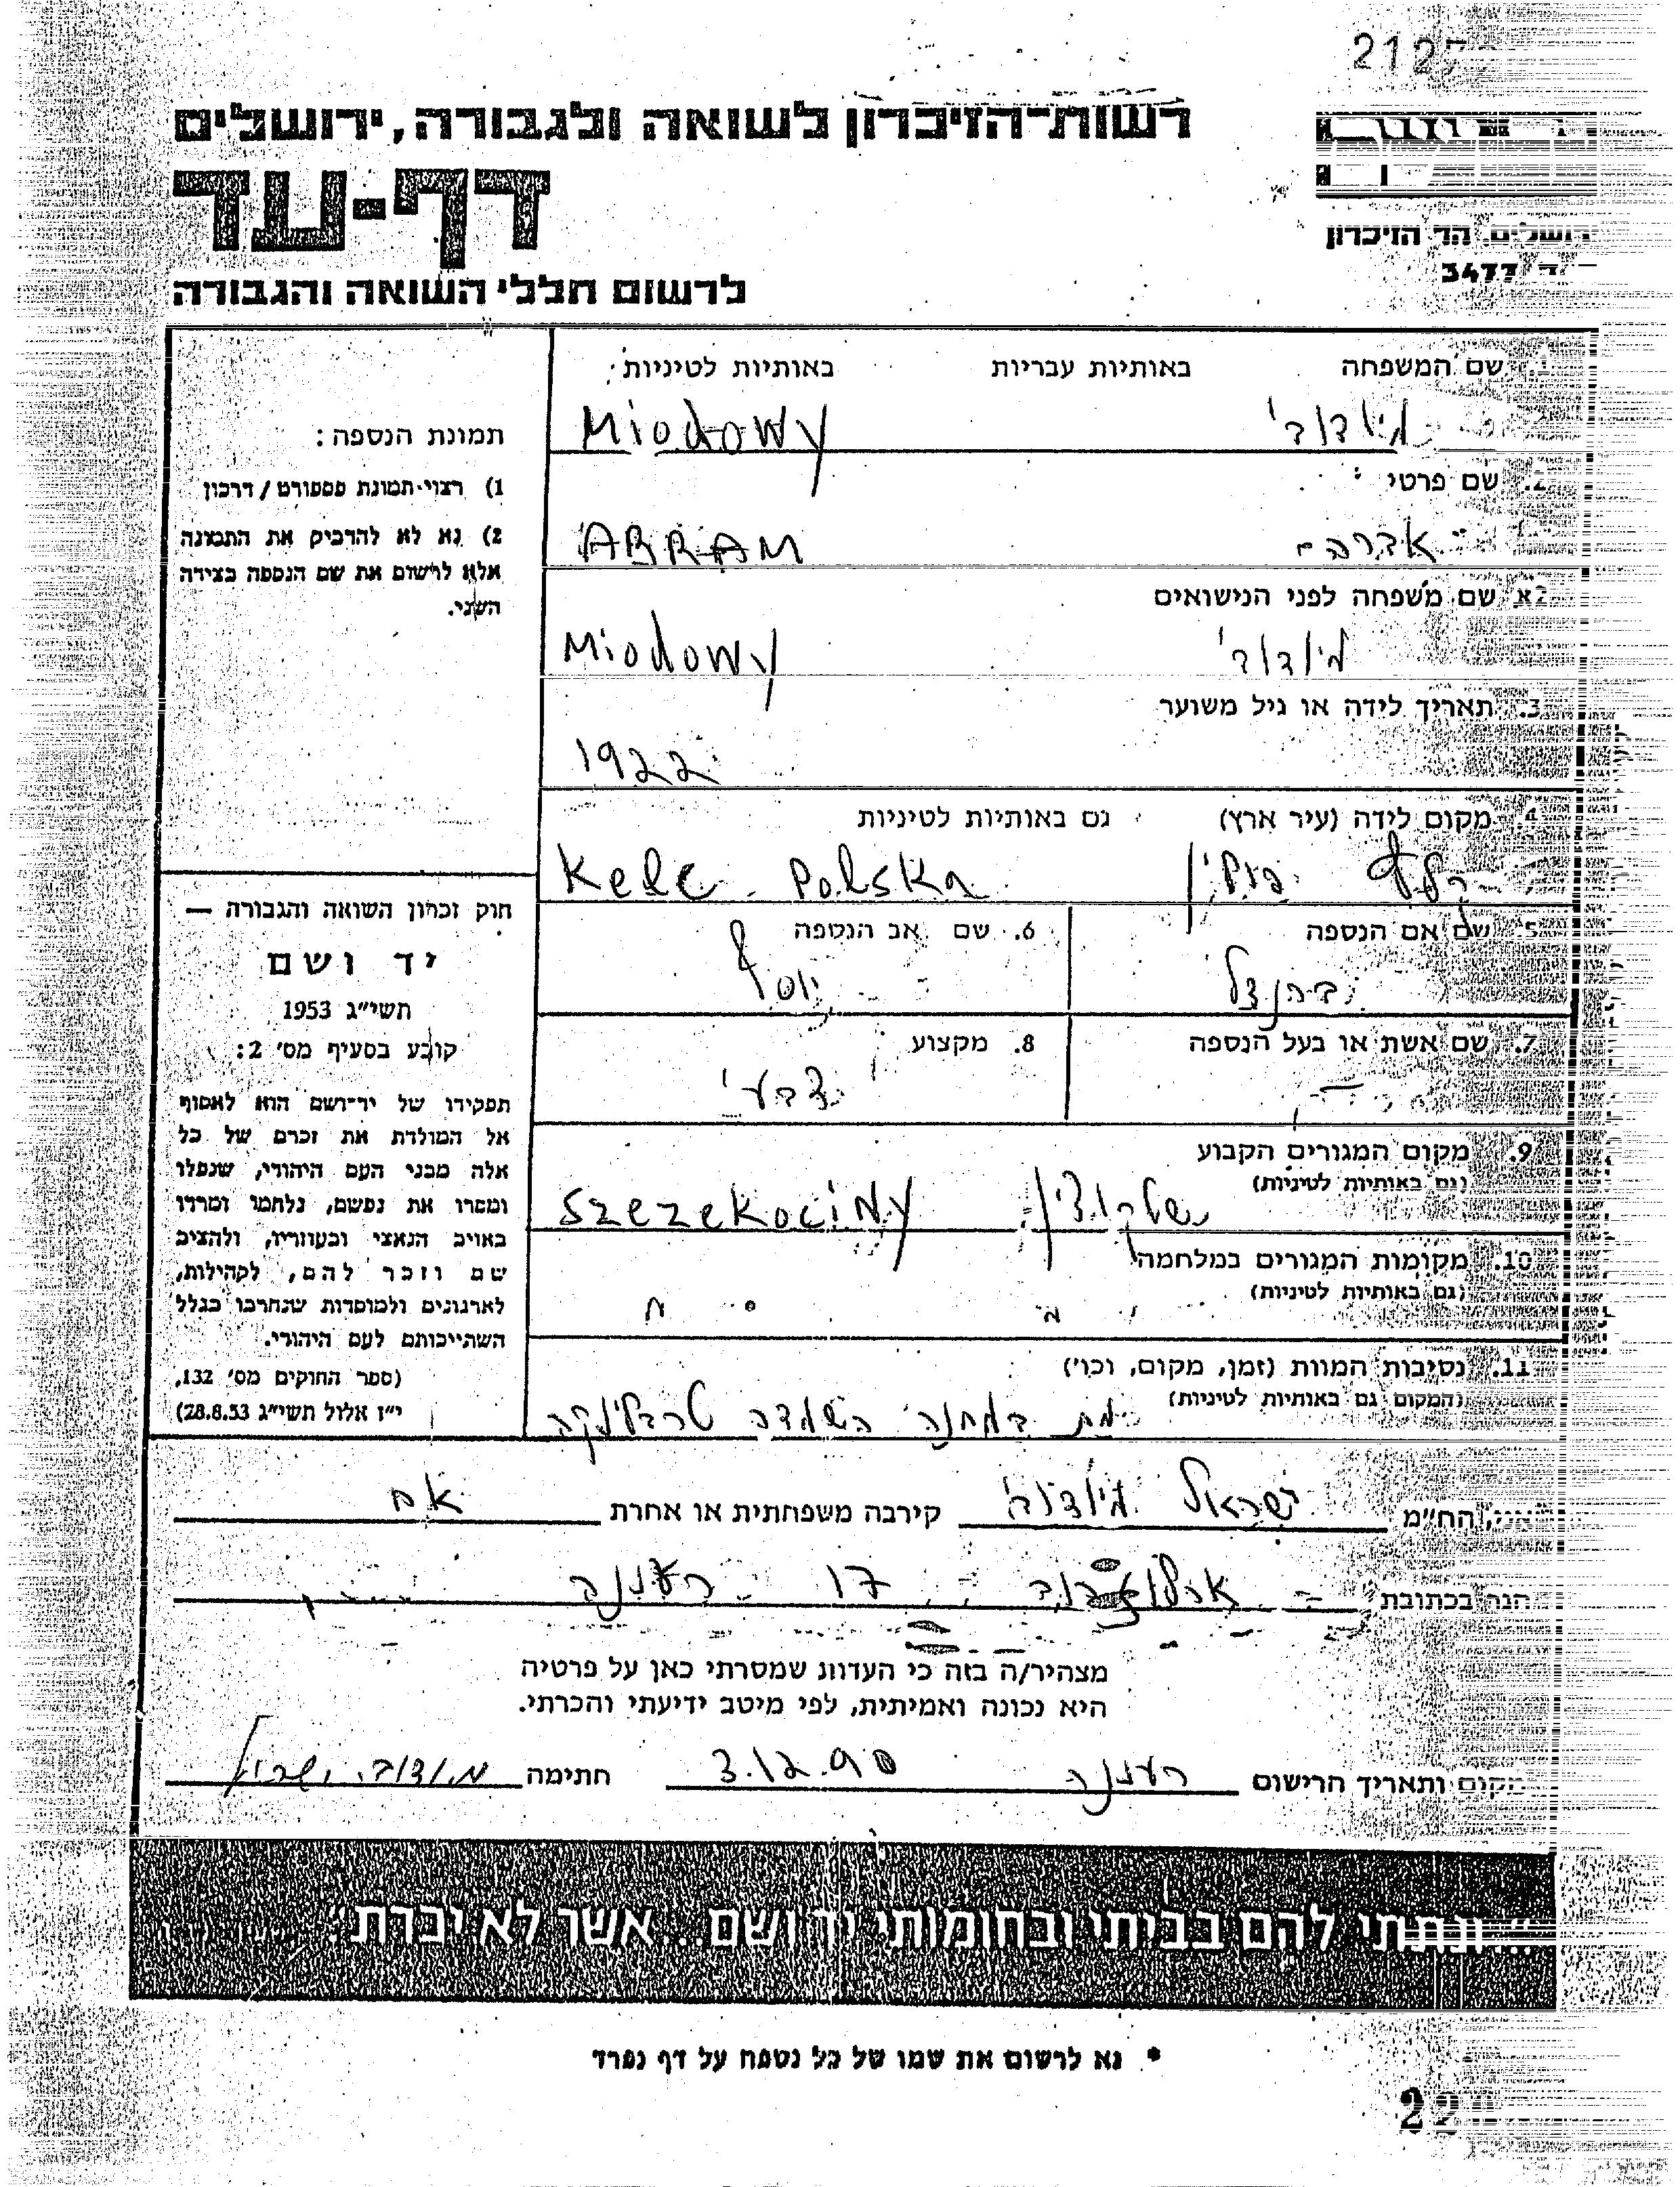 רשות-הזיכרון לשואה ולגבורה, ירושלים
דף-עד
לרשום חללי השואה והגבורה
ירושלים, הר הזיכרון
3477
שם המשפחה באותיות עבריות באותיות לטיניות:
מיודובי Miodowy
2. שם פרטי
אברהם ABRAM
2א. שם משפחה לפני הנישואים
מיודובי Miodowy
3. תאריך לידה או גיל משוער
1922
4. מקום לידה (עיר ארץ) גם באותיות לטיניות
פולין Kelc Polska
5. שם אם הנספה 6. שם אב הנספה
יוסף
7. שם אשת או בעל הנספה 8. מקצוע
צבעי
9. מקום המגורים הקבוע
(גם באותיות לטיניות)
Szczekociny
10. מקומות המגורים במלחמה
(גם באותיות לטיניות)
11. נסיבות המוות (זמן, מקום, וכו')
(המקום גם באותיות לטיניות)
מת במחנה השמדה טרבלינקה
תמונת הנספה:
1) רצוי תמונת פספורט / דרכון
2) נא לא להדביק את התמונה
אלא לרשום את שם הנספה בצידה
השני.
חוק זכרון השואה והגבורה —
יד ושם
תשי״ג 1953
קובע בסעיף מס' 2:
תפקידו של יד-ושם הוא לאסוף
אל המולדת את זכרם של כל
אלה מבני העם היהודי, שנפלו
ומסרו את נפשם, נלחמו ומרדו
באויב הנאצי ובעוזריו, ולהציב
שם וזכר להם, לקהילות,
לארגונים ולמוסדות שנחרבו בגלל
השתייכותם לעם היהודי.
(ספר החוקים מס' 132,
י״ז אלול תשי״ג 28.8.53)
אני, הח״מ ישראל מיודובי קירבה משפחתית או אחרת אח
הגר בכתובת 17 רעננה
מצהיר/ה בזה כי העדות שמסרתי כאן על פרטיה
היא נכונה ואמיתית, לפי מיטב ידיעתי והכרתי.
מקום ותאריך הרישום רעננה 3.12.90 חתימה מיודובי ישראל
"...ונתתי להם בביתי ובחומותי יד ושם... אשר לא יכרת"
* נא לרשום את שמו של כל נספה על דף נפרד